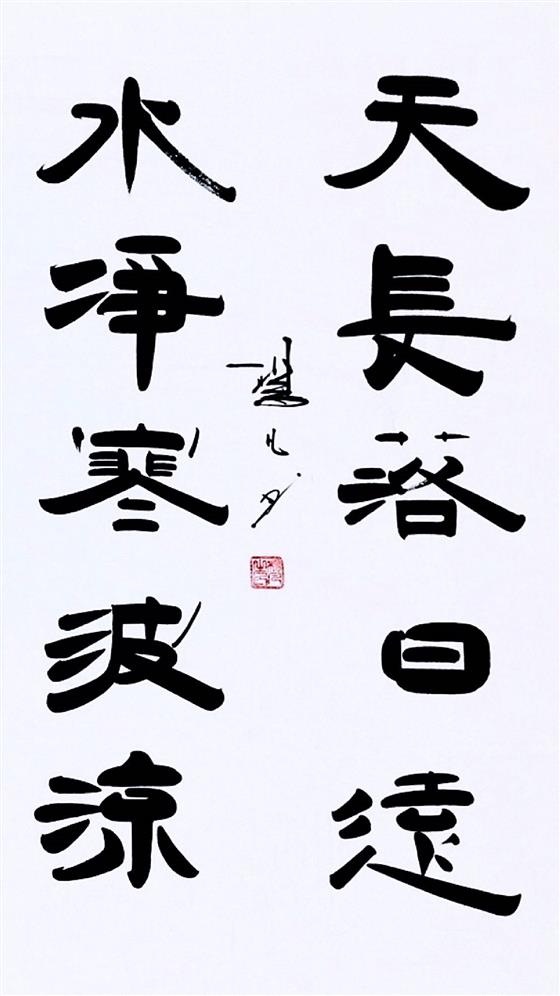 天長落日遠
水淨寒波涼